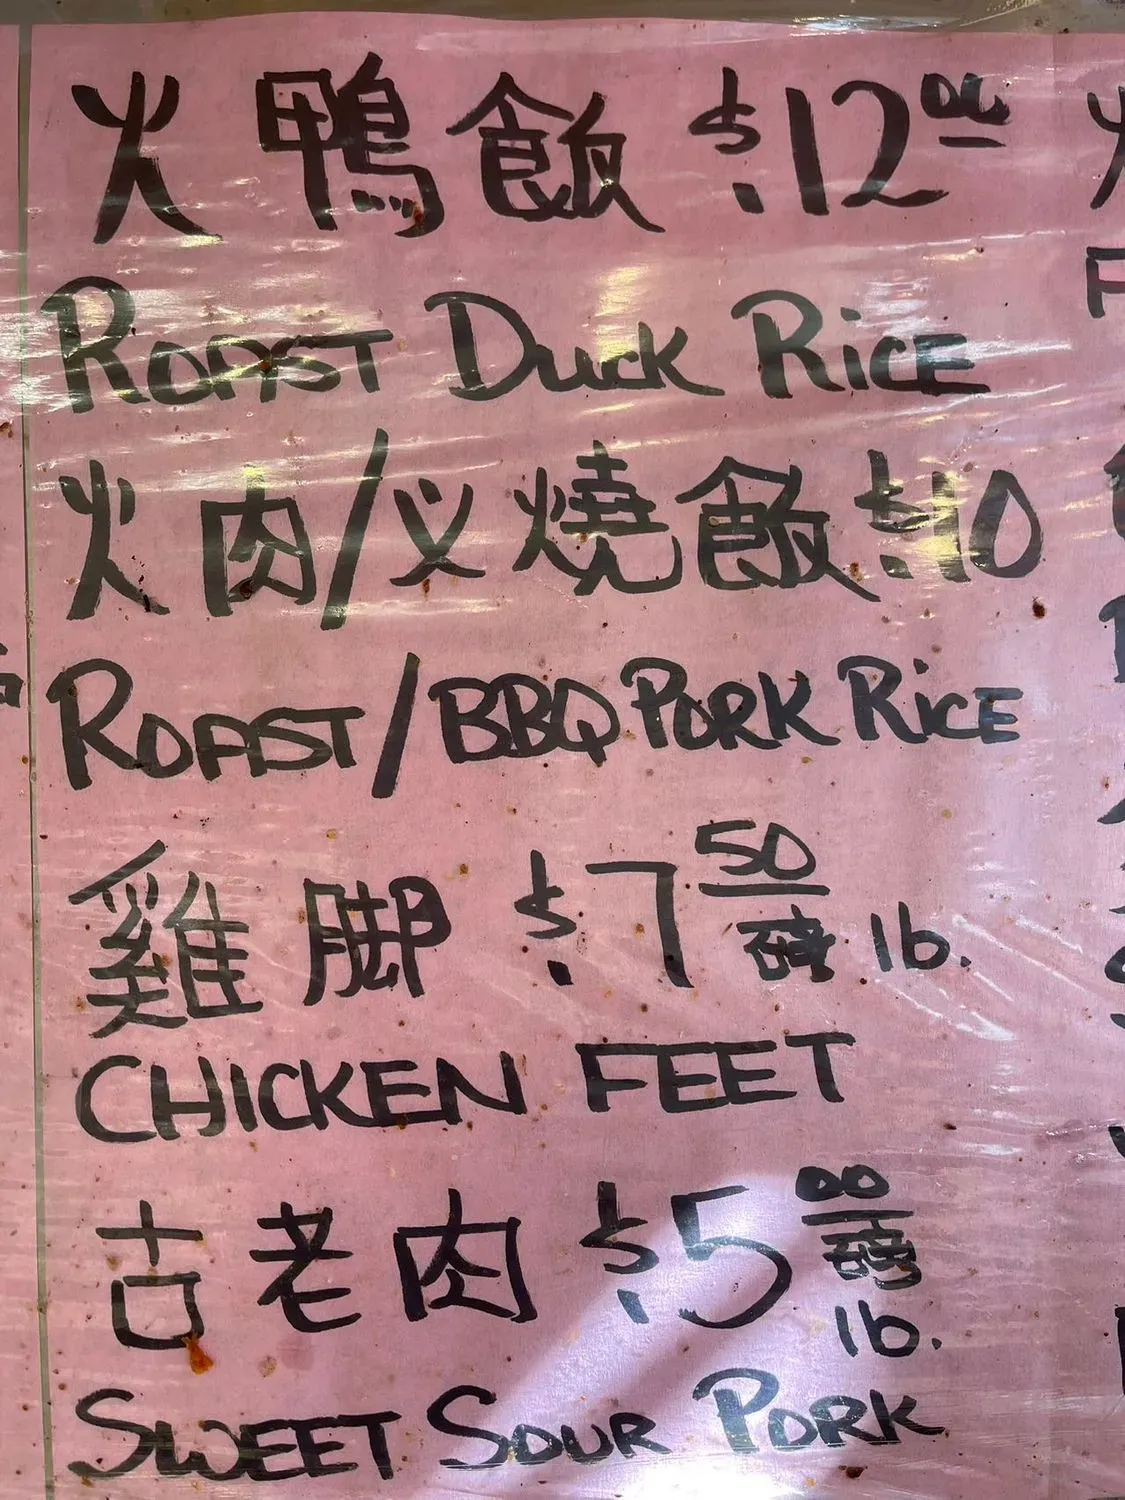 火鴨飯 $12.00
ROAST DUCK RICE
火肉/叉燒飯 $10
ROAST/BBQ PORK RICE
雞脚 $7.50 磅 lb.
CHICKEN FEET
古老肉 $5.00 磅 lb.
SWEET SOUR PORK